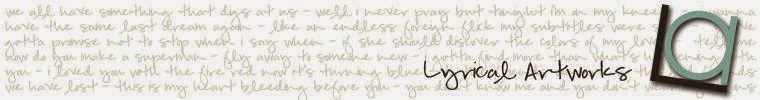 we all have something that digs at us - well i never pray but tonight i'm on my knees wanna
have the same last dream again - like an endless foreign flick my subtitles were
gotta promise not to stop when i say when - if she should discover the colors of my love tell me
how do you make a superman - fly away to someone new - i gotta find more than what's happening with
you - i loved you with the fire red now it's turning blue
we have lost - this is my heart bleeding before you - you don't know me and you don't
Lyrical Artworks
la